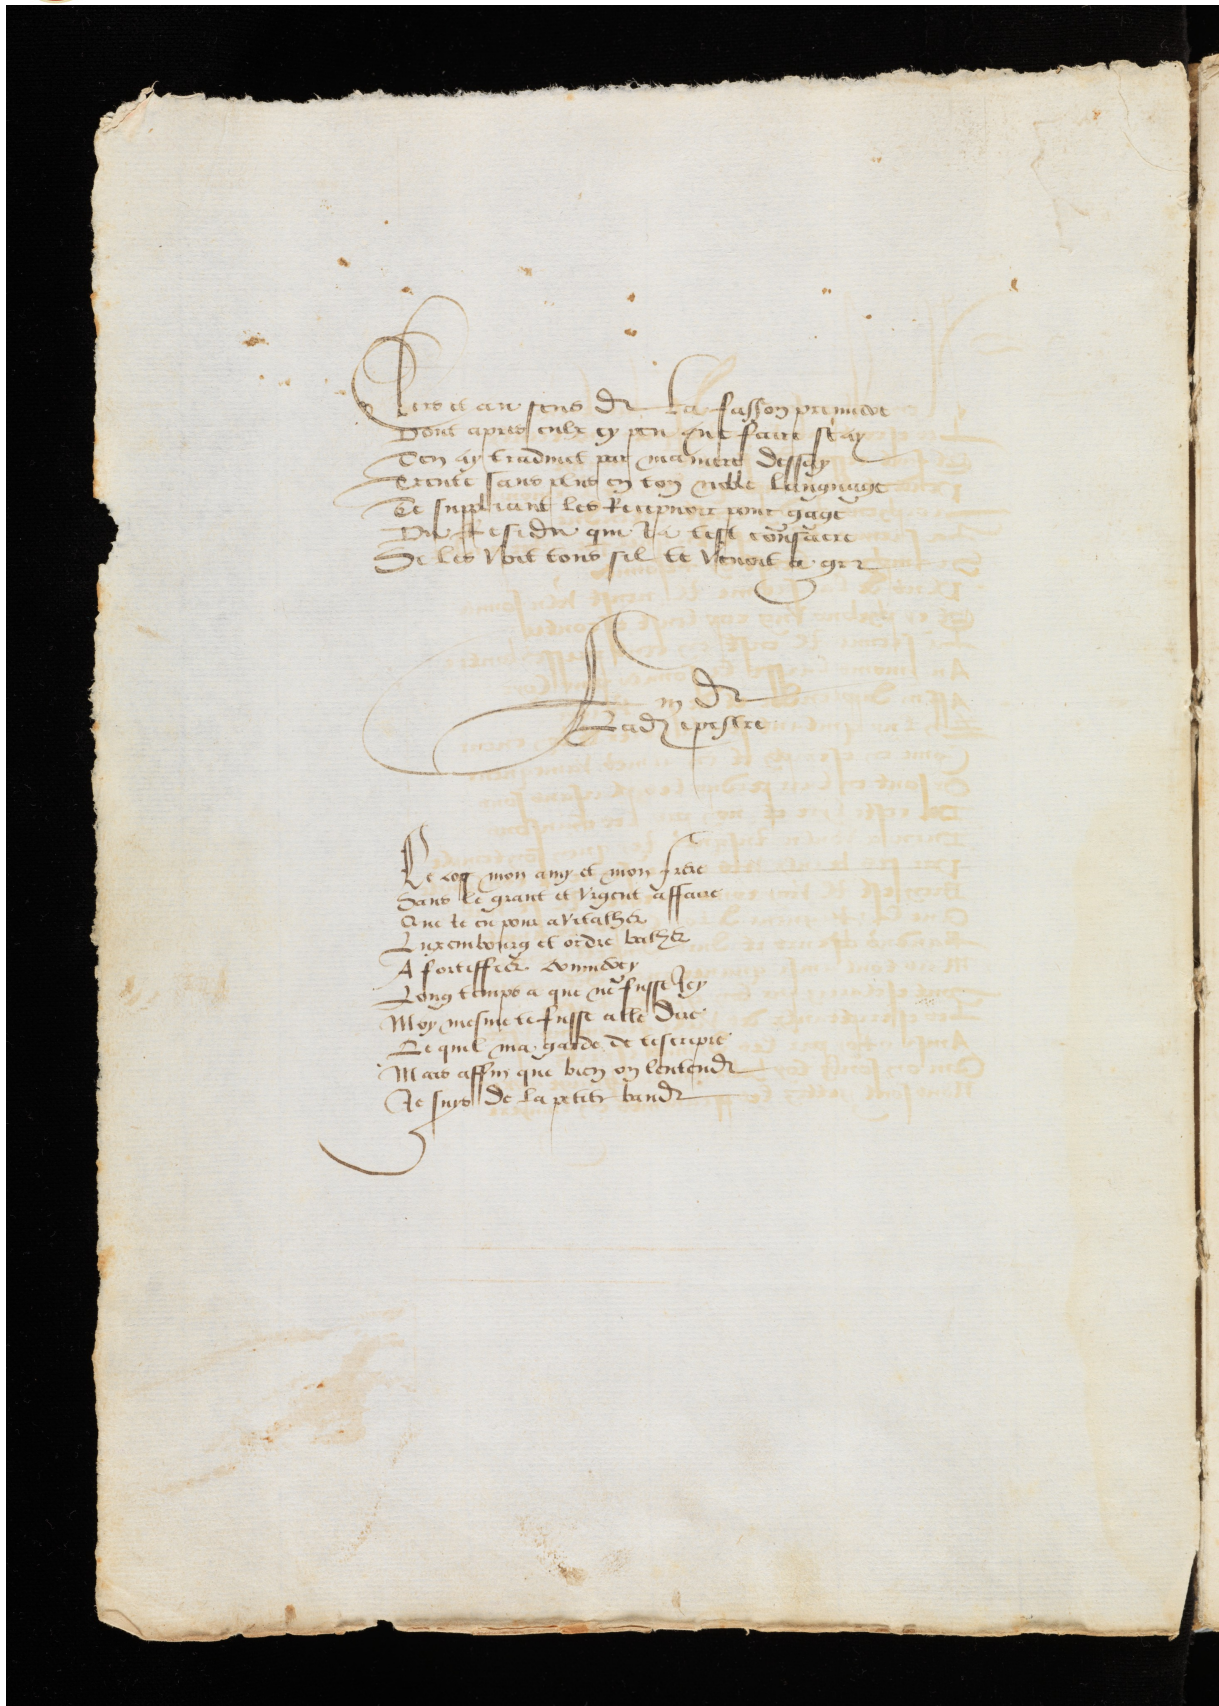 Vers et au sens de la fasson premiere
Dont apres eulx ay peu que faire scay
Ten ay traduict par maniere dessay
Trente sans plus en ton noble languaige
Te suppliant les Recepvoir pour gaige
Du Residu qui Ja test consacre
Se les voir tous sil te venoit a gre
Fin de
Ladz epestre
Le coq mon amy et mon frere
Sans le grant et vrgent affaire
Que Je eu pour avitailler
Luxembourg et ordre bailler
A fortiffier
Long temps a que ne fusse Jcy
Moy mesme te fusse alle dire
Ce quil ma garde de tescripre
Mais affin que bien on lentende
Je suys de la petite bande